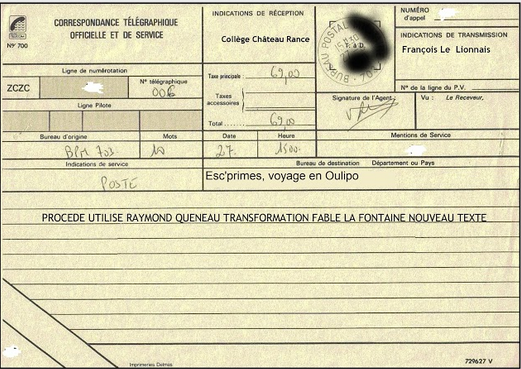 CORRESPONDANCE TÉLÉGRAPHIQUE
OFFICIELLE ET DE SERVICE
N° 700
INDICATIONS DE RÉCEPTION
Collège Château Rance
BUREAU POSTAL
NUMÉRO
d'appel
INDICATIONS DE TRANSMISSION
François Le Lionnais
N° de la ligne du P.V.
Ligne de numérotation
ZCZC
N° télégraphique
Taxe principale
69,00
Taxes
accessoires
Total
69,00
Signature de l'Agent
Vu : Le Receveur,
Ligne Pilote
Bureau d'origine
Mots
Date
Heure
Mentions de Service
BPM 703.
10
27.
1500.
Indications de service
Bureau de destination Département ou Pays
POSTE
Esc'primes, voyage en Oulipo
PROCEDE UTILISE RAYMOND QUENEAU TRANSFORMATION FABLE LA FONTAINE NOUVEAU TEXTE
729627 V